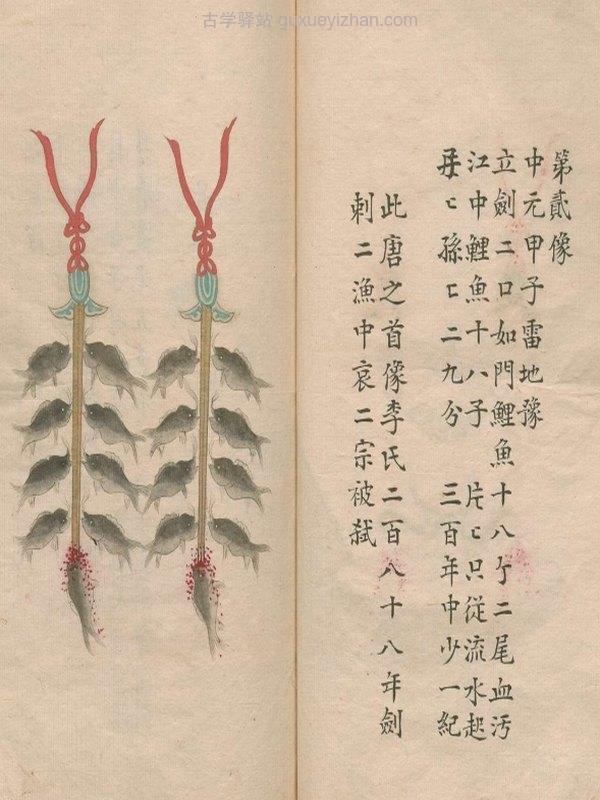 古学驿站 guxueyizhan.com
第貳像
中元甲子雷地豫
立劍二口如門鯉魚十八亇二尾血污
江中鯉魚十八子 片〻只從流水起
〻孫〻二九分 三百年中少一紀
此唐之首像李氏二百八十八年劍
刺二漁中哀二宗被弑